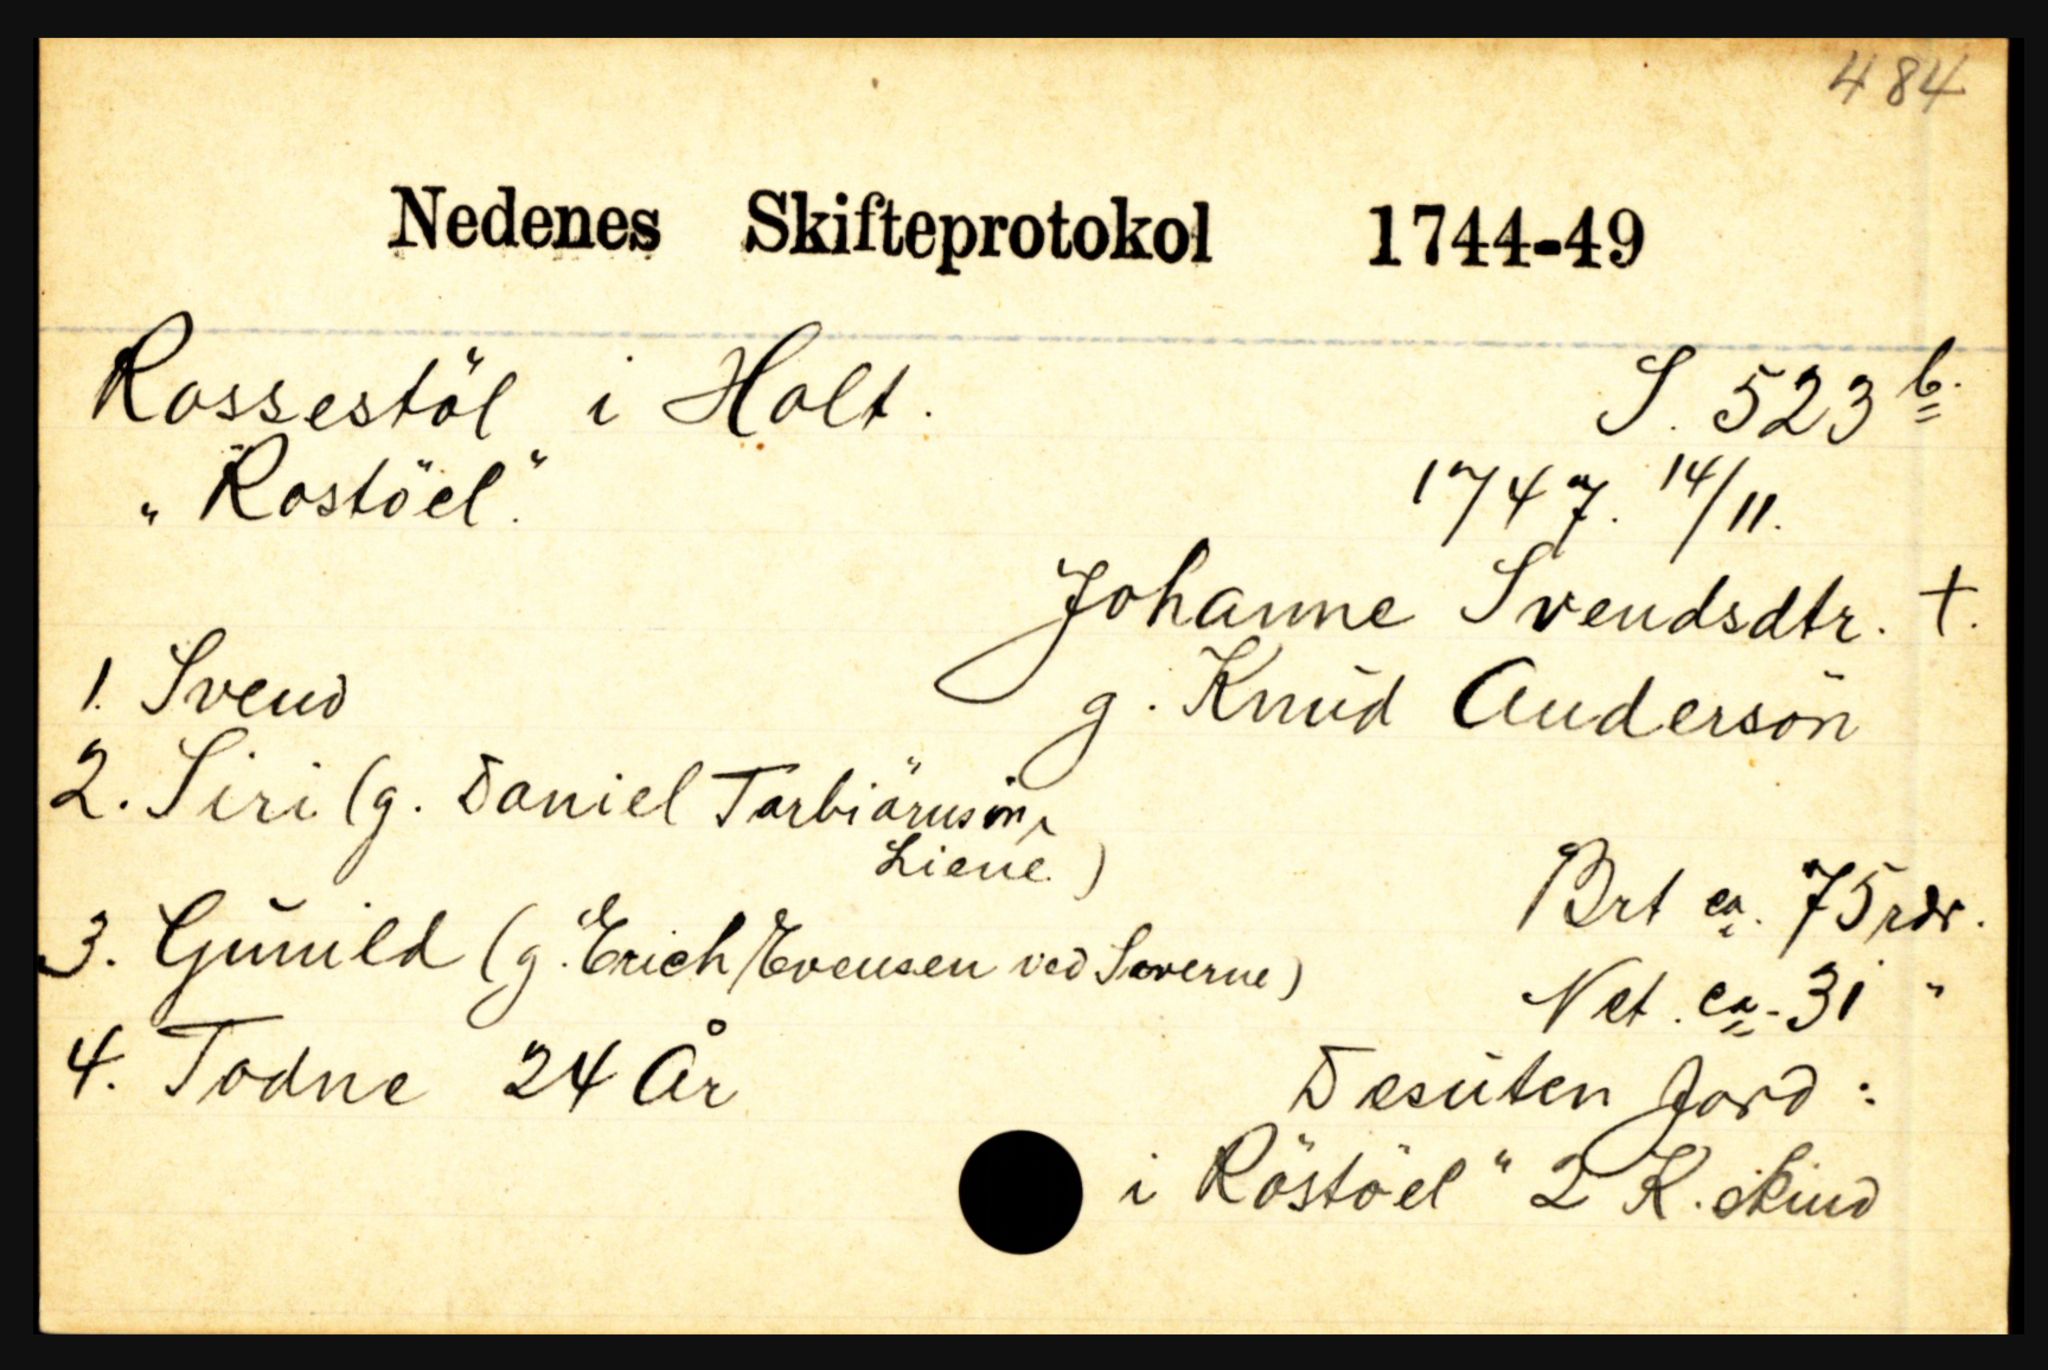 484
Nedenes Skifteprotokol 1744-49
Rossestöl i Holt. S. 523 b.
"Rostöel". 1747. 14/11.
Johanne Svendsdtr. +.
1. Svend g. Knud Andersön
2. Siri (g. Daniel Torbiörnsön,
Liene)
Brt ca. 75 rdr.
3. Gunild (g. Erich Evensen ved Saverne)
Net. ca. 31 "
4. Todne 24 År Desuten Jord:
i Röstöel" 2 K. skind